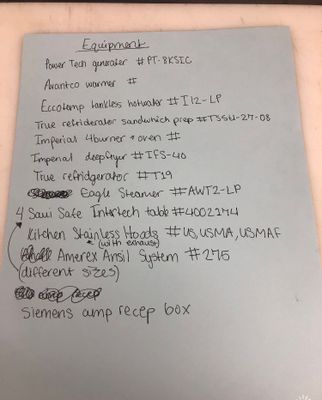 Equipment
Power Tech generater #PT-8KSIC
Avantco warmer #
Eccotemp tankless hotwater #I12-LP
True refriderater sandwhich prep #TSSU-27-08
Imperial 4burner + oven #
Imperial deepfryer #IFS-40
True refridgerator #T19
Eagle Steamer #AWT2-LP
4 Sani Safe Intertech tabb #4002174
Kitchen Stainless Hoods #US, USMA, USMAF
* (with exhaust)
Amerex Ansil System #275
(different sizes)
Siemens amp recep box